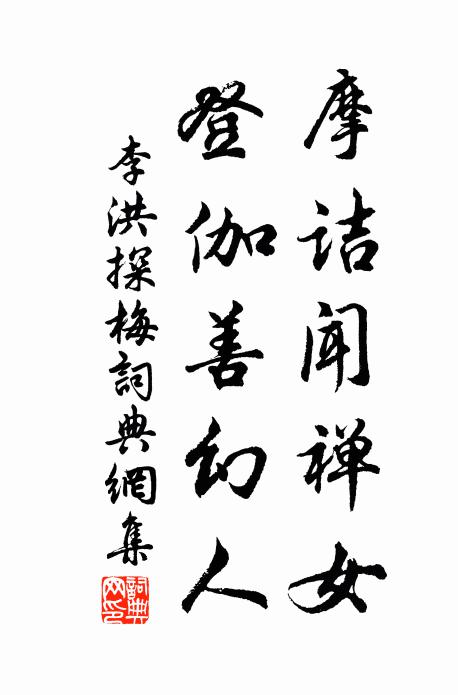 摩诘闻禅女
登伽善幻人
李洪探梅詞典網集
詞典网印